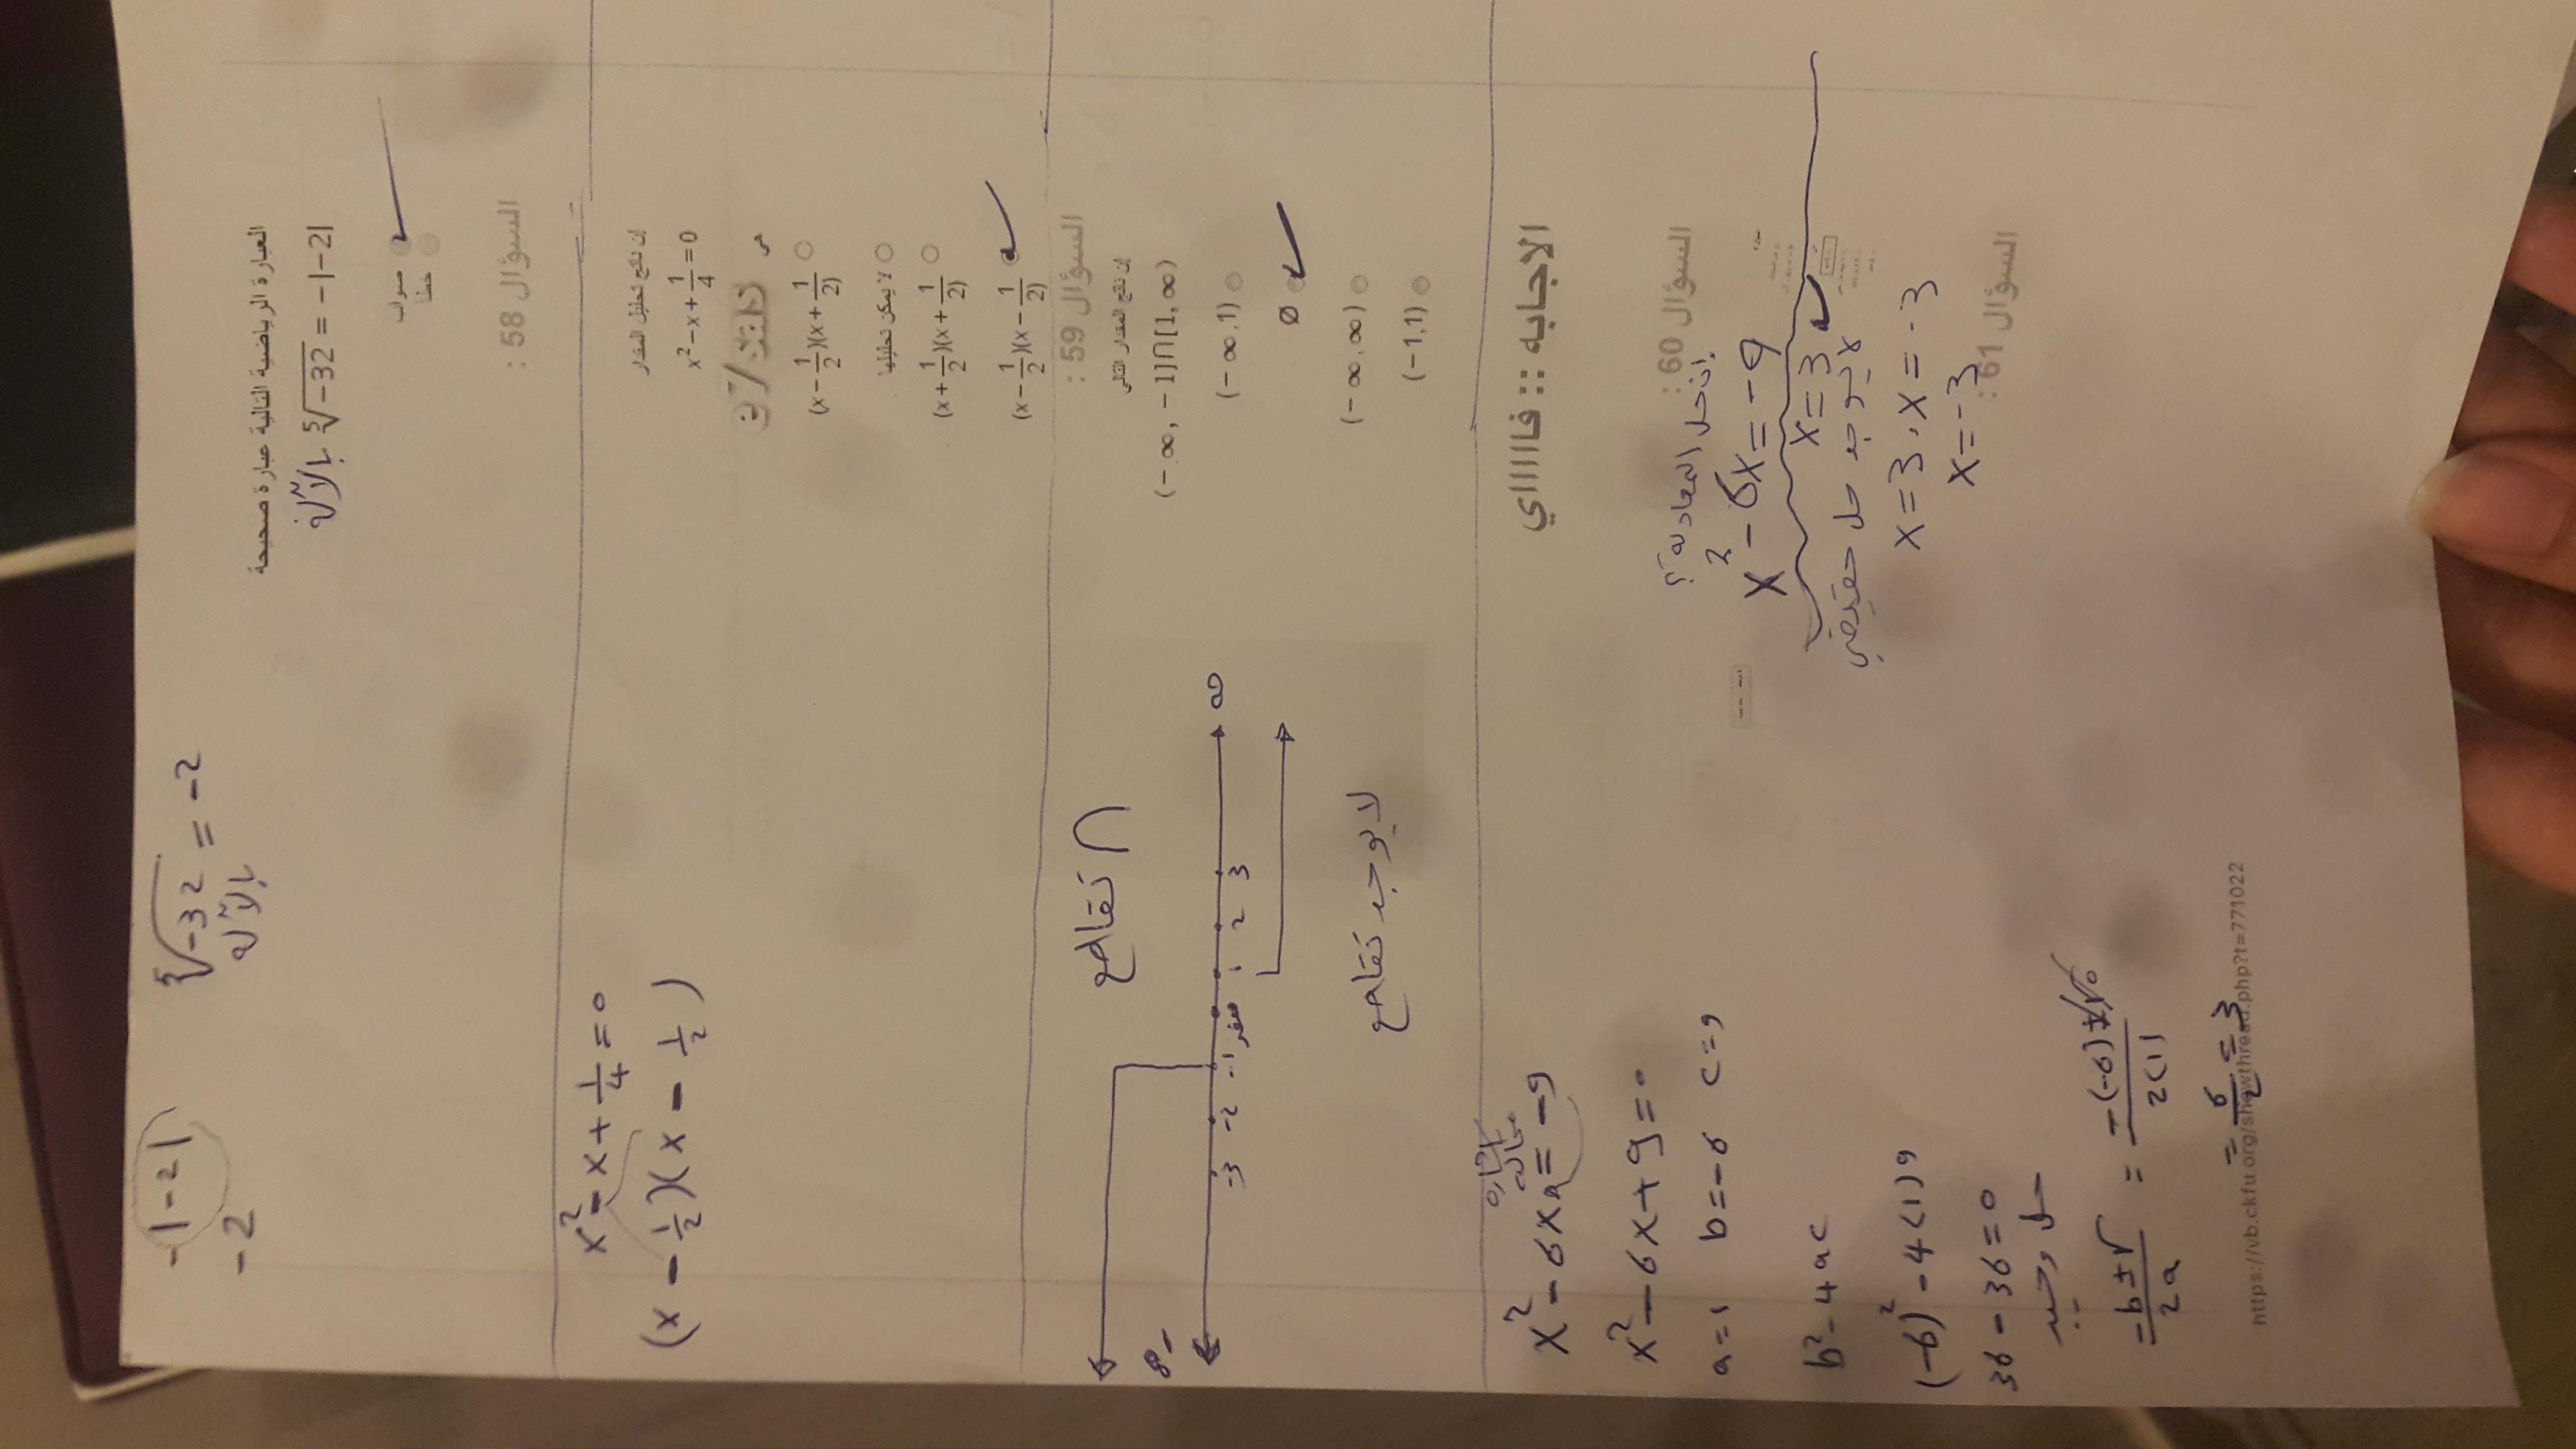 -|-2|
-2
⁵√-32 = -2
بالآلة
العبارة الرياضية التالية عبارة صحيحة
⁵√-32 = -|-2|
بالآلة
صواب
خطأ
السؤال 58 :
إن ناتج تحليل المقدار
x² - x + 1/4 = 0
هي
(x - 1/2)(x + 1/2)
لا يمكن تحليلها
(x + 1/2)(x + 1/2)
(x - 1/2)(x - 1/2)
x² - x + 1/4 = 0
(x - 1/2)(x - 1/2)
السؤال 59 :
إن ناتج المقدار التالي
(-∞, -1]∩[1, ∞)
(-∞,1)
Ø
(-∞,∞)
(-1,1)
∩ تقاطع
-∞
-3 -2 -1 صفر 1 2 3
∞
لا يوجد تقاطع
الاجابه :: فااااااي
السؤال 60 :
إن حل المعادلة؟
x² - 6x = -9
x = 3
لا يوجد حل حقيقي
x = 3, x = -3
x = -3
السؤال 61 :
x² - 6x = -9
x² - 6x + 9 = 0
a = 1 b = -6 c = 9
b² - 4ac
(-6)² - 4(1)9
36 - 36 = 0
حل وحيد
= -b ± √ / 2a = -(-6) ± √0 / 2(1)
= 6/2 = 3
https://vb.ckfu.org/showthread.php?t=771022